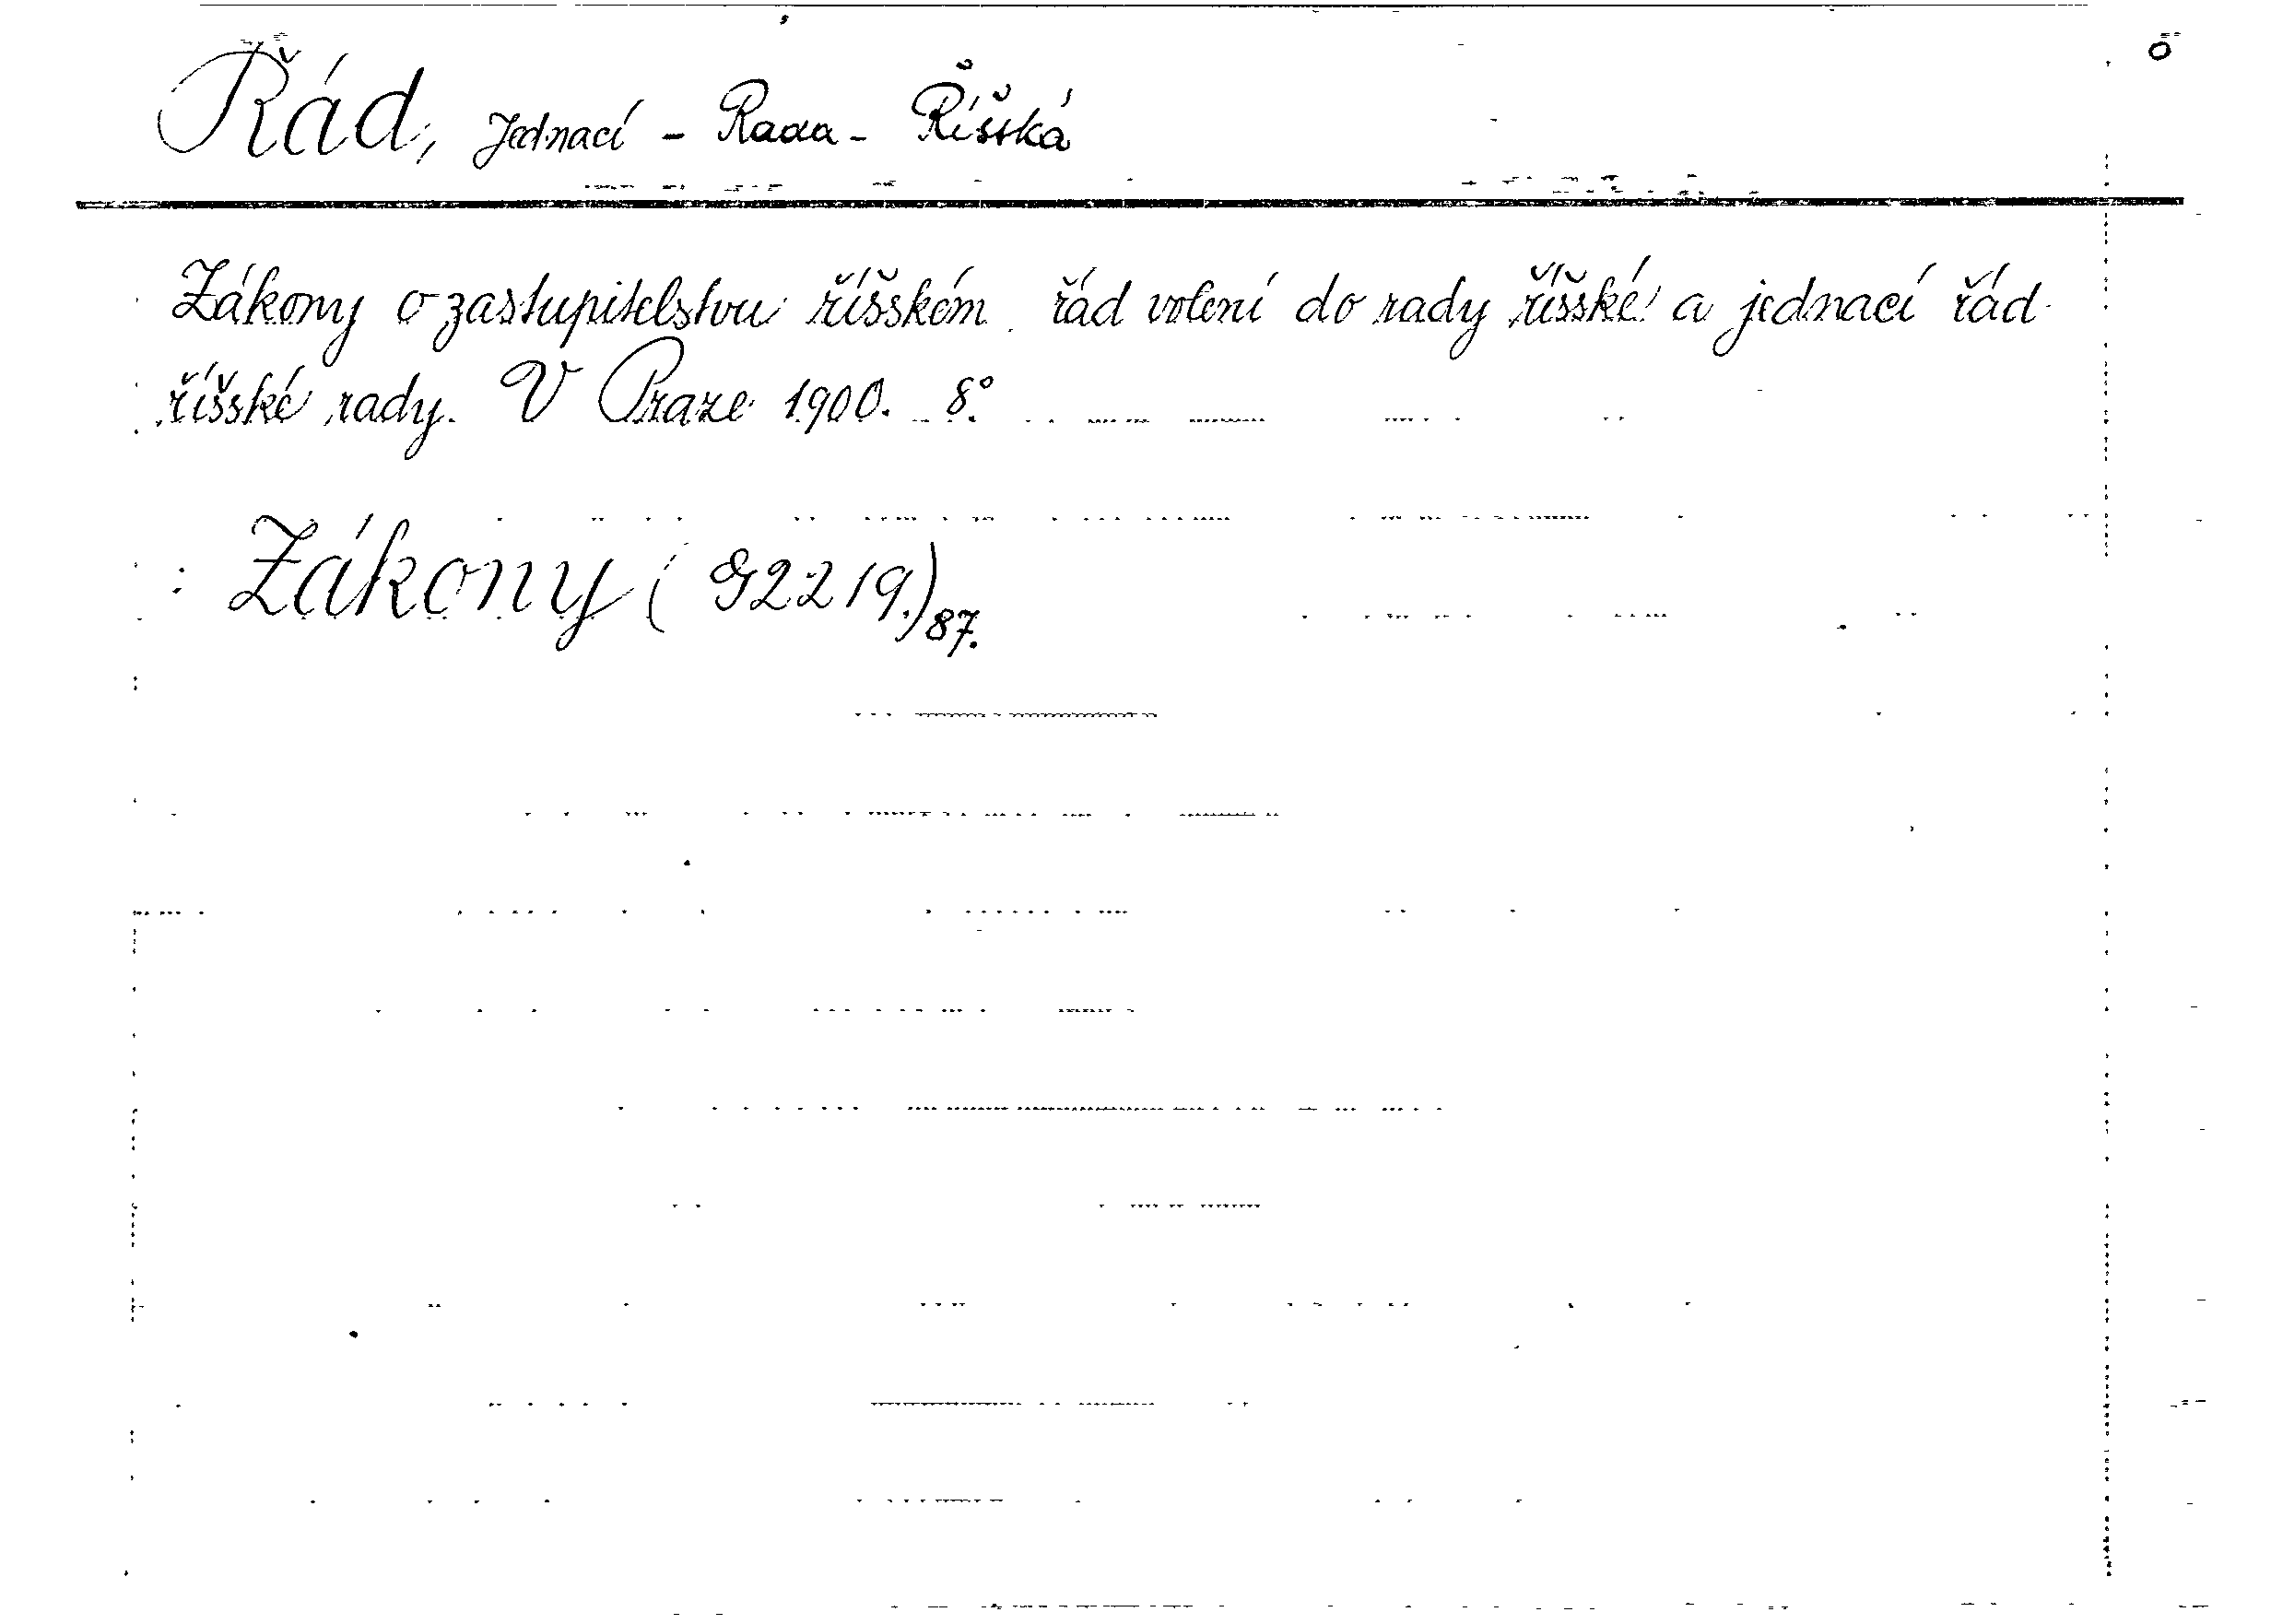 Řád, Jednací - Rada - Říšská
Zákony o zastupitelstvu říšském. řád volení do rady říšské a jednací řád
říšské rady. V Praze 1900. 8°.
: Zákony ( G 2219.) 87.